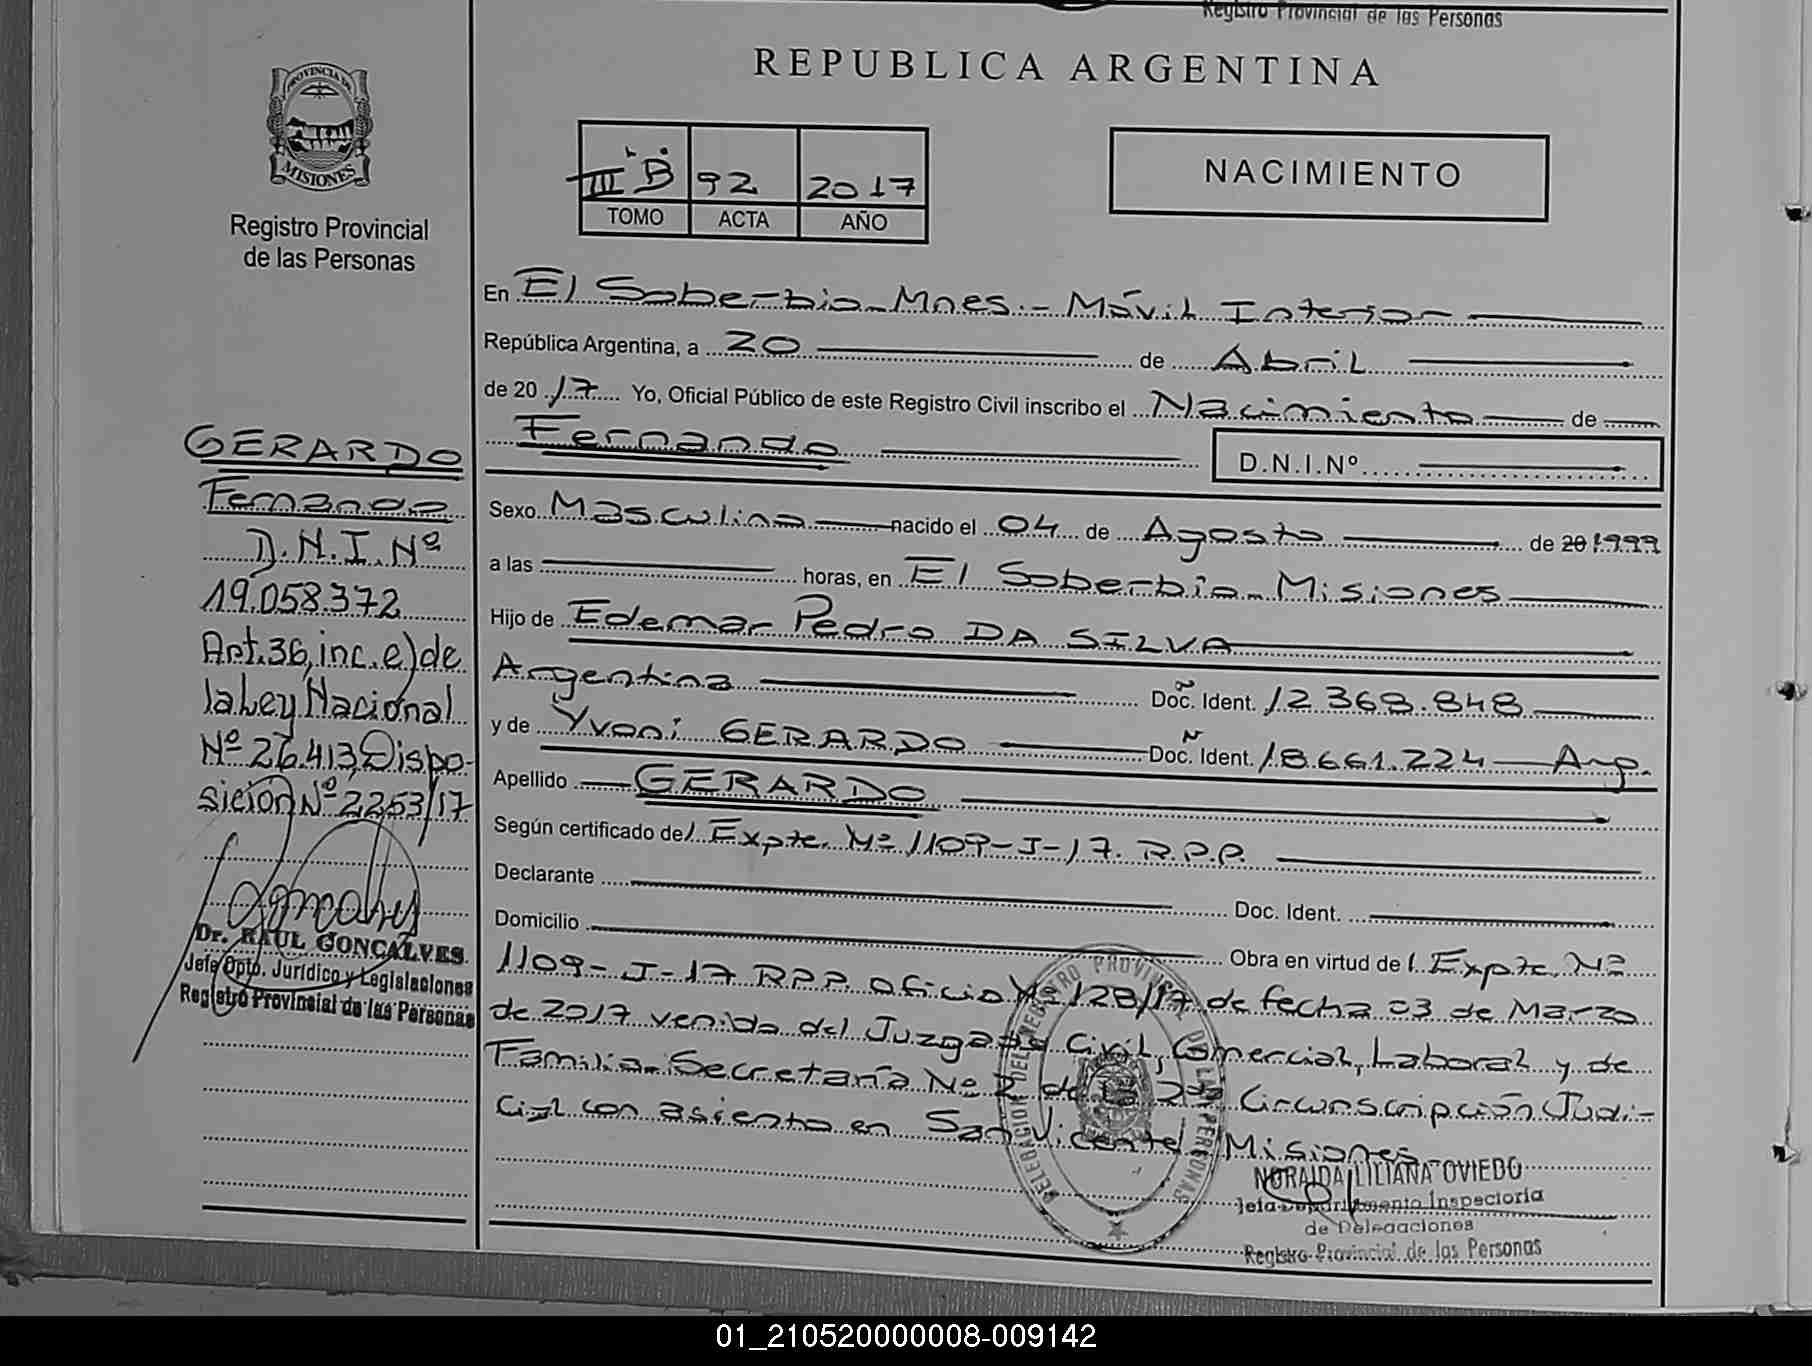 Registro Provincial de las Personas
REPUBLICA ARGENTINA
PROVINCIA DE
MISIONES
Registro Provincial
de las Personas
III B 92 2017
TOMO ACTA AÑO
NACIMIENTO
En El Soberbio_Mnes.- Móvil Interior
República Argentina, a 20 de Abril
de 2017 Yo, Oficial Público de este Registro Civil inscribo el Nacimiento de
Fernando D.N.I.Nº
Sexo Masculino nacido el 04 de Agosto de 20 1.999
a las horas, en El Soberbio_ Misiones
Hijo de Edemar Pedro DA SILVA
Argentina Doc. Ident. 12.368.848
y de Yvoni GERARDO Doc. Ident. 18.661.224 Arg.
Apellido GERARDO
Según certificado de Expte. Nº 1109-I-17. R.P.P.
Declarante Doc. Ident.
Domicilio Obra en virtud de Expte. Nº
1109-I-17 RPP. Oficio Nº 128/17 de fecha 03 de Marzo
de 2017 venido del Juzgado Civil, Comercial, Laboral y de
Familia_Secretaría Nº 2 de la Circunscripción Judi-
cial con asiento en San Vicente, Misiones
GERARDO
Fernando
D.N.I.Nº
19.058.372
Art.36,inc.e)de
la Ley Nacional
Nº 26.413,Dispo-
sición Nº 2253/17
Dr. RAUL GONCALVES
Jefe Dpto. Jurídico y Legislaciones
Registro Provincial de las Personas
DELEGACION DEL REGISTRO PROVINCIAL DE LAS PERSONAS
NORAIDA LILIANA OVIEDO
Jefa Departamento Inspectoría
de Delegaciones
Registro Provincial de las Personas
01_210520000008-009142